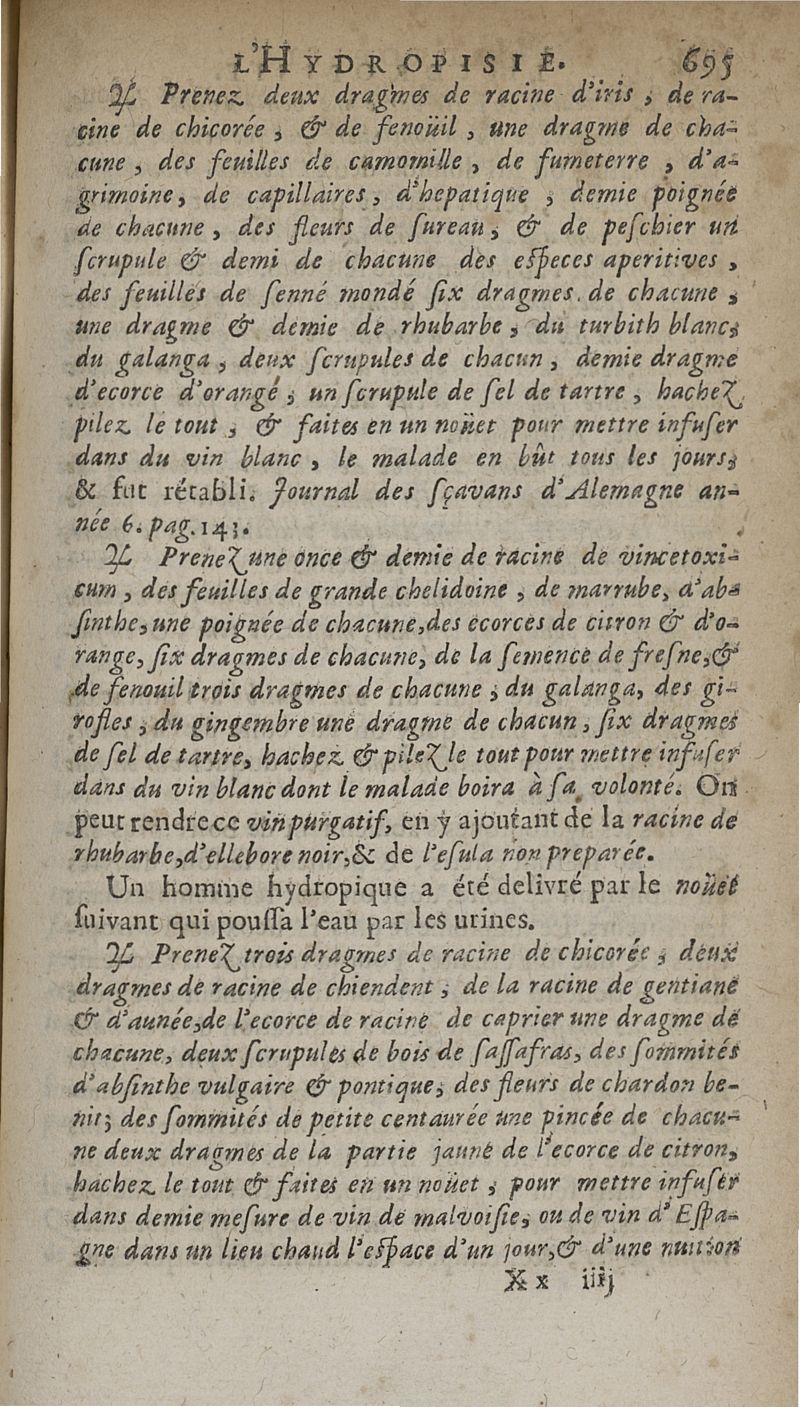 L'HYDROPISIE. 695
♃ Prenez deux dragmes de racine d'iris, de ra-
cine de chicorée, & de fenoüil, une dragme de cha-
cune, des feuilles de camomille, de fumeterre, d'a-
grimoine, de capillaires, d'hepatique, demie poignée
de chacune, des fleurs de ſureau, & de peſchier un
ſcrupule & demi de chacune des eſpeces aperitives,
des feuilles de ſenné mondé ſix dragmes. de chacune,
une dragme & demie de rhubarbe, du turbith blanc,
du galanga, deux ſcrupules de chacun, demie dragme
d'ecorce d'orange, un ſcrupule de ſel de tartre, hachez,
pilez le tout, & faites en un noüet pour mettre infuſer
dans du vin blanc, le malade en bût tous les jours,
& fut rétabli. Journal des ſçavans d'Alemagne an-
née 6. pag. 143.
♃ Prenez une once & demie de racine de vincetoxi-
cum, des feuilles de grande chelidoine, de marrube, d'ab-
ſinthe, une poignée de chacune, des écorces de citron & d'o-
range, ſix dragmes de chacune, de la ſemence de freſne, &
de fenouil trois dragmes de chacune, du galanga, des gi-
rofles, du gingembre une dragme de chacun, ſix dragmes
de ſel de tartre, hachez & pilez le tout pour mettre infuſer
dans du vin blanc dont le malade boira à ſa volonté. On
peut rendre ce vin purgatif, en y ajoutant de la racine de
rhubarbe, d'ellebore noir, & de l'eſula non preparée.
Un homme hydropique a été delivré par le noüet
ſuivant qui pouſſa l'eau par les urines.
♃ Prenez trois dragmes de racine de chicorée, deux
dragmes de racine de chiendent, de la racine de gentiane
& d'aunée, de l'ecorce de racine de caprier une dragme de
chacune, deux ſcrupules de bois de ſaſſafras, des ſommités
d'abſinthe vulgaire & pontique, des fleurs de chardon be-
nit, des ſommités de petite centaurée une pincée de chacu-
ne deux dragmes de la partie jaune de l'ecorce de citron,
hachez le tout & faites en un noüet, pour mettre infuſer
dans demie meſure de vin de malvoiſie, ou de vin d'Eſpa-
gne dans un lieu chaud l'eſpace d'un jour, & d'une
X x iiij